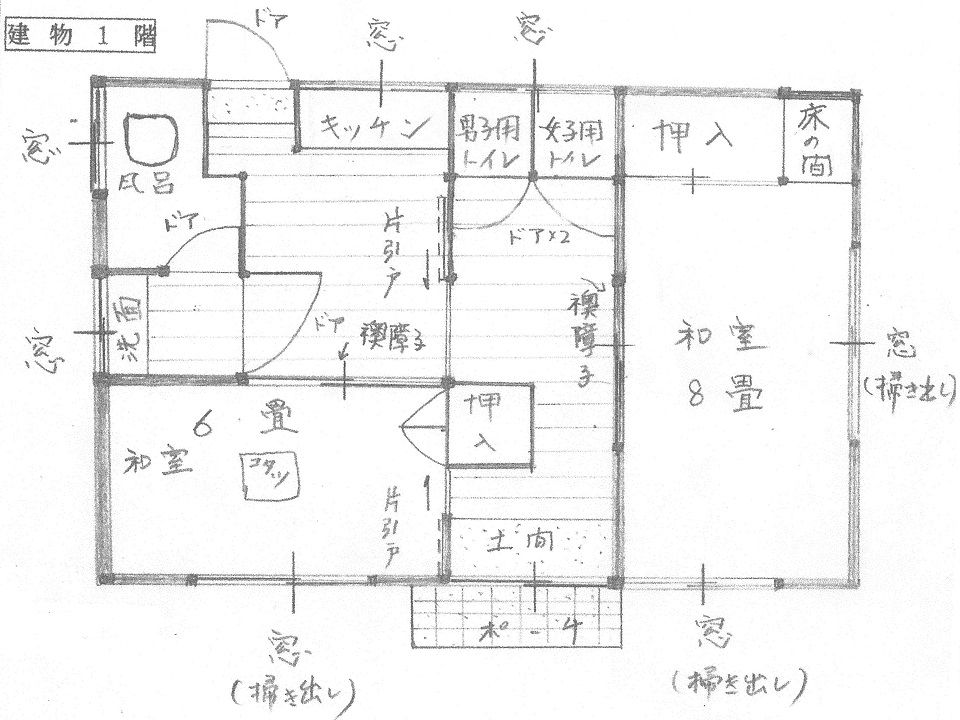 建物1階
ドア
窓
窓
キッチン
男子用
トイレ
女子用
トイレ
押入
床の間
窓
風呂
ドア
片引戸
ドア×2
洗面
窓
ドア
襖障子
襖障子
和室
8畳
窓
(掃き出し)
6畳
和室
コタツ
押入
片引戸
土間
ポーチ
窓
(掃き出し)
窓
(掃き出し)